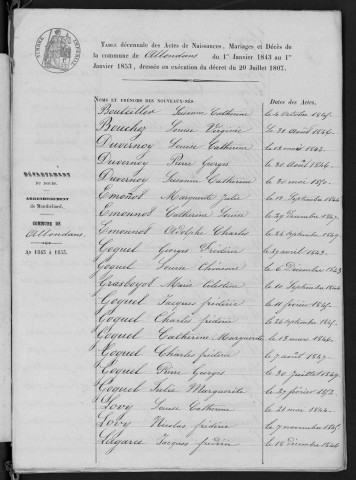 TABLE décennale des Actes de Naissances, Mariages et Décès de
la commune de Allondans du 1er Janvier 1843 au 1er
Janvier 1853, dressée en exécution du décret du 20 Juillet 1807.
DÉPARTEMENT
DU DOUBS.
ARRONDISSEMENT
de Montbéliard.
COMMUNE DE
Allondans.
An 1843 à 1853.
NOMS ET PRÉNOMS DES NOUVEAUX-NÉS. Dates des Actes.
Bouteiller Suzanne Catherine le 4 Octobre 1845.
Bouchez Louise Virginie le 21 Août 1846.
Duvernoy Louise Catherine le 12 mars 1843.
Duvernoy Pierre Georges le 20 Août 1846.
Duvernoy Suzanne Catherine le 20 mars 1850.
Emonot Marguerite Julie le 12 Septembre 1844
Emonnot Catherine Louise le 29 décembre 1847.
Emonnot Adolphe Charles le 24 Septembre 1849.
Goguel Georges Frédéric le 29 avril 1843.
Goguel Louise le 6 Décembre 1843
Marie Célestine le 10 Septembre 1844
Goguel Jacques frédéric le 11 février 1845.
Goguel Charles frédéric le 24 septembre 1845.
Goguel Catherine Marguerite le 13 mars 1846.
Goguel Charles frédéric le 7 août 1847.
Goguel Pierre Georges le 30 juillet 1849.
Goguel Julie Marguerite le 29 février 1852.
Lovy Louise Catherine le 21 mai 1844.
Lovy Nicolas frédéric le 7 novembre 1845.
Lagarce Jacques frédéric le 18 décembre 1846